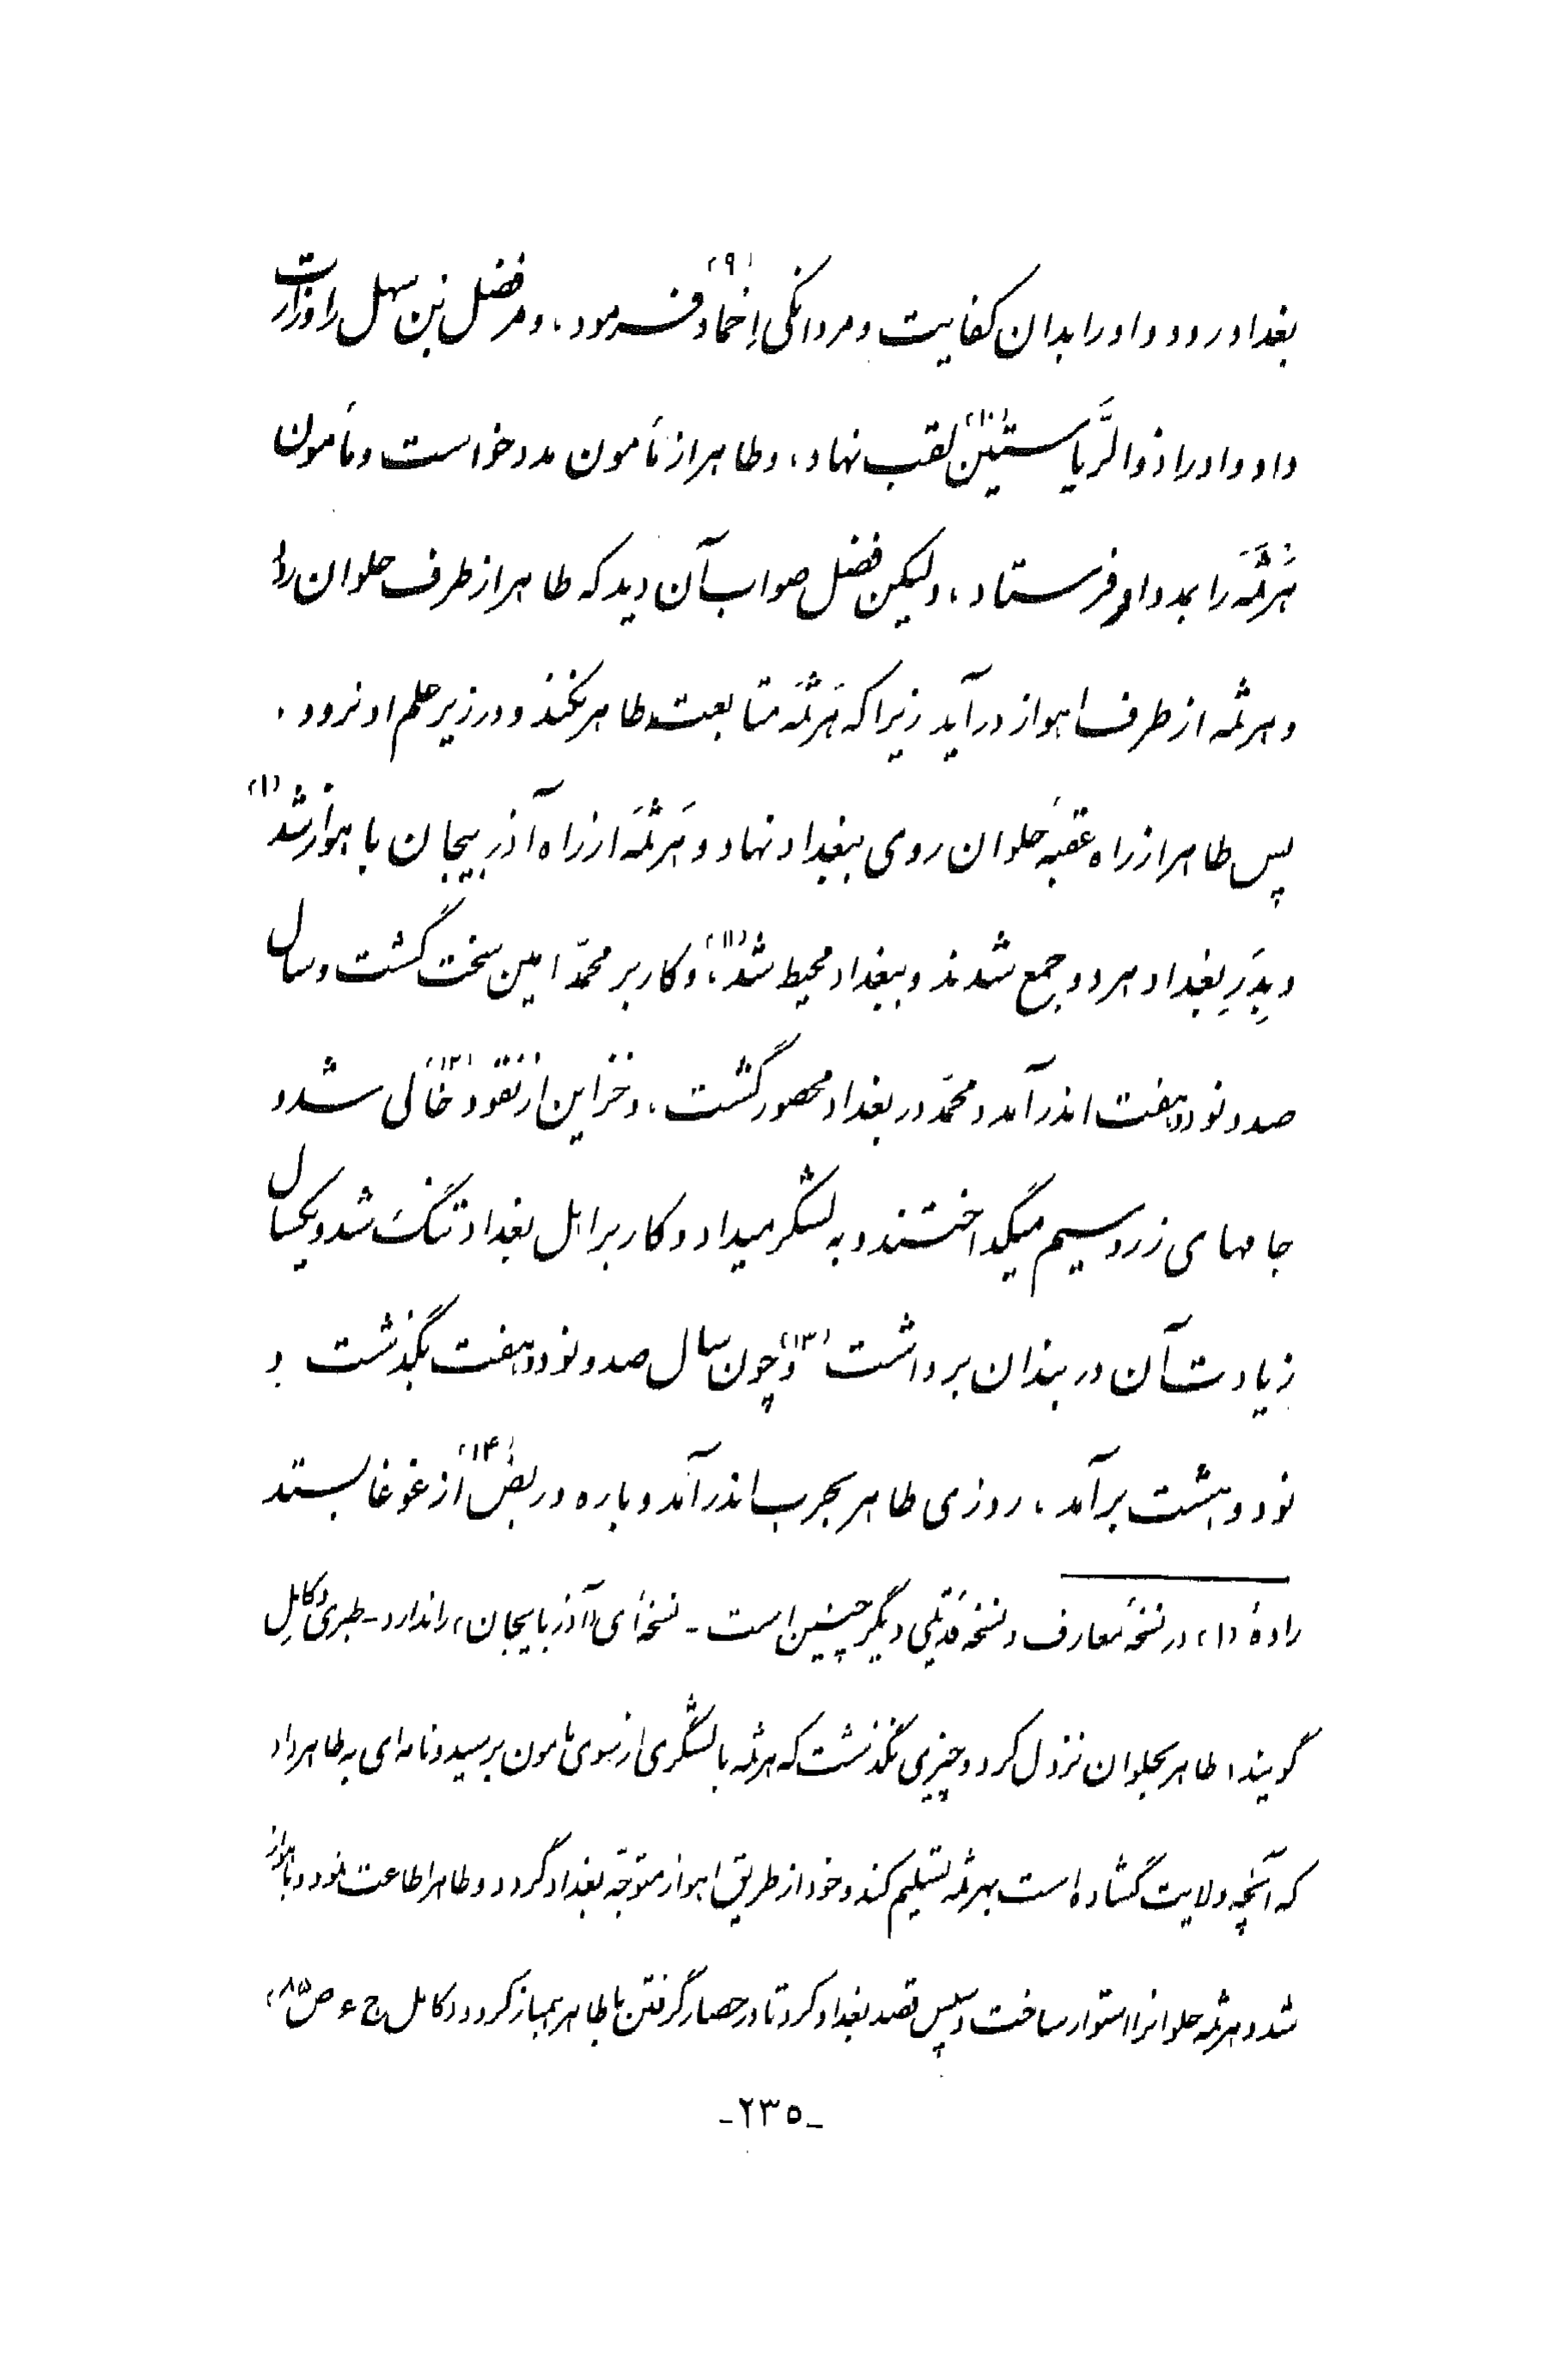 بغداد رود و او را بدان کفایت و مردانگی اِحماد (۹) فرمود، و مر فضل بن سهل را وزارت
داد و او را ذوالرَّیاستین (۱۰) لقب نهاد، و طاهر از مأمون مدد خواست و مأمون
هَرثَمَه را بمدد او فرستاد، ولیکن فضل صواب آن دید که طاهر از طرف حلوان رود
و هرثمه از طرف اهواز درآید زیرا که هَرثَمَه متابعت طاهر نکند و در زیر علم او نرود.
پس طاهر از راه عقبهٔ حلوان روی ببغداد نهاد و هَرثَمَه از راه آذربیجان باهواز شد (۱)
و بِدَرِ بغداد هر دو جمع شدند و ببغداد محیط شد (۱۱)، و کار بر محمّد امین سخت گشت و سال
صد و نود و هفت اندر آمد و محمّد در بغداد محصور گشت، و خزاین از نقود (۱۲) خالی شد و
جامهای زر و سیم میگداختند و به لشگر میداد و کار بر اهل بغداد تنگ شد و یکسال
زیادت آن در بندان برداشت (۱۳) و چون سال صد و نود و هفت بگذشت و
نود و هشت برآمد، روزی طاهر بحرب اندر آمد و باره در بض (۱۴) از غوغا بستد
رادهٔ (۱)، در نسخهٔ معارف و نسخهٔ قدیمی دیگر چنین است - نسخه‌ای «آذربایجان» را ندارد - طبری و کامل
گویند: طاهر بحلوان نزول کرد و چیزی نگذشت که هرثمه با لشگری از سوی مأمون برسید و نامه‌ای به طاهر داد
که آنچه ولایت گشاده است بهرثمه تسلیم کند و خود از طریق اهواز متوجّه بغداد گردد و طاهر اطاعت نمود و باهواز
شد و هرثمه حلوانرا استوار ساخت و سپس قصد بغداد کرد تا در حصار گرفتن با طاهر انباز کردد (کامل ج ۶ ص ۸۵)
-۲۳۵-